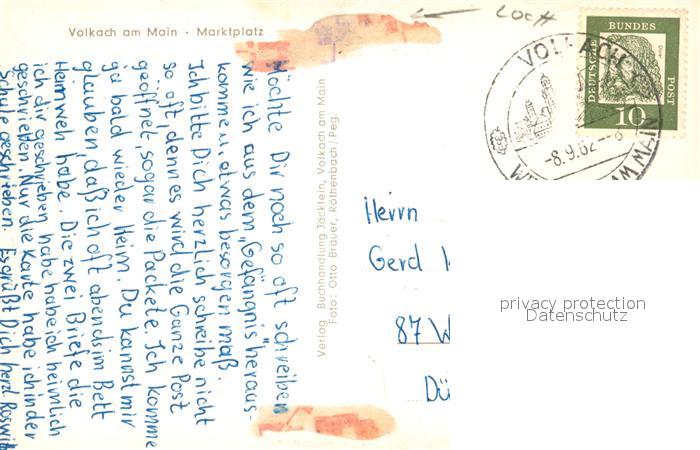 Volkach am Main · Marktplatz
LOCH
DEUTSCHE
BUNDES
POST
Dürer
10
VOLKACH
-8.9.62--8
Möchte Dir noch so oft schreiben
wie ich aus dem „Gefängnis" heraus-
komme u. etwas besorgen maß.
Ich bitte Dich herzlich schreibe nicht
so oft, denn es wird die Ganze Post
geöffnet, sogar die Packete. Ich komme
ja bald wieder Heim. Du kannst mir
glauben, daß ich oft abends im Bett
Heimweh habe. Die zwei Briefe die
ich dir geschrieben habe habe ich heimlich
geschrieben. Nur die Karte habe ich in der
Schule geschrieben. Es grüßt Dich herzl. Roswith
Verlag Buchhandlung Jäcklein, Volkach am Main
Foto: Otto Bräuer, Röthenbach/Peg.
Herrn
Gerd
87 W
Dü
privacy protection
Datenschutz